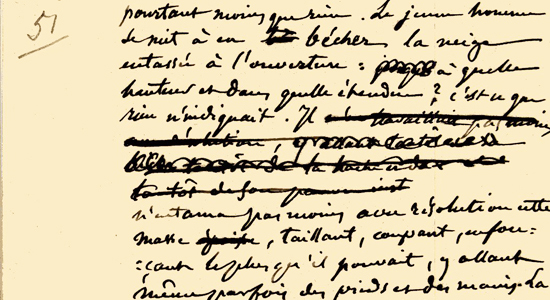 51
pourtant moins que rien. Le jeune homme
se mit à en bêcher la neige
entassée à l'ouverture : à quelle
hauteur et dans quelle étendue ? c'est ce que
rien n'indiquait. Il travaillait pas moins
tantôt de la hache
tantôt de son
n'entama pas moins avec résolution cette
masse épaisse, taillant, coupant, enfon=
=çant le plus qu'il pouvait, y allant
même parfois des pieds et des mains. La